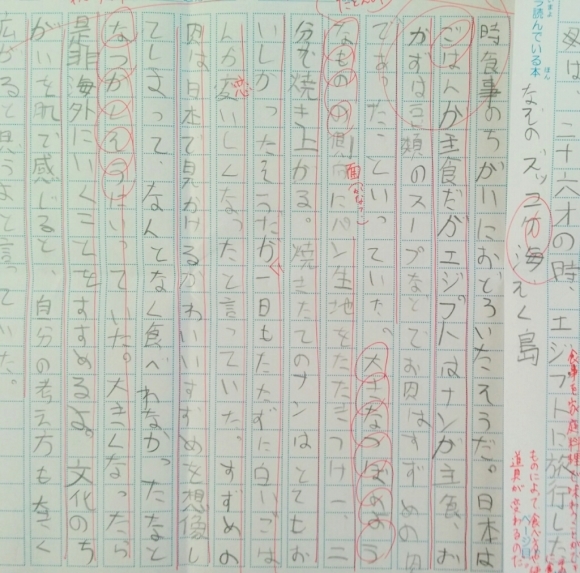 父は、二十六才の時、エジプトに旅行した
ら読んでいる本
なぞのズッコケ海
島
時食事のちがいにおどろいたそうだ。日本は
ごはんが主食だがエジプトはナンが主食、お
かずは豆類のスープなどでお肉はすずめの肉
であったといっていた。大きなつぼのよう
なものの側面にパン生地をたたきつけ一、二
分で焼き上がる。焼きたてのナンはとてもお
いしかったそうだが一日もたたずに白いごは
んが変いしくなったと言っていた。すずめの
恋
肉は日本で見かけるかわいいすずめを想像し
てしまって、なんとなく食べれなかったなと
なつかしそうにいっていた。大きくなったら
是非海外にいくことをすすめるよ。文化のち
がいを肌で感じると、自分の考え方も大きく
広がると思うよと言っていた。
ものによって食べ
道具が変わるのだ。